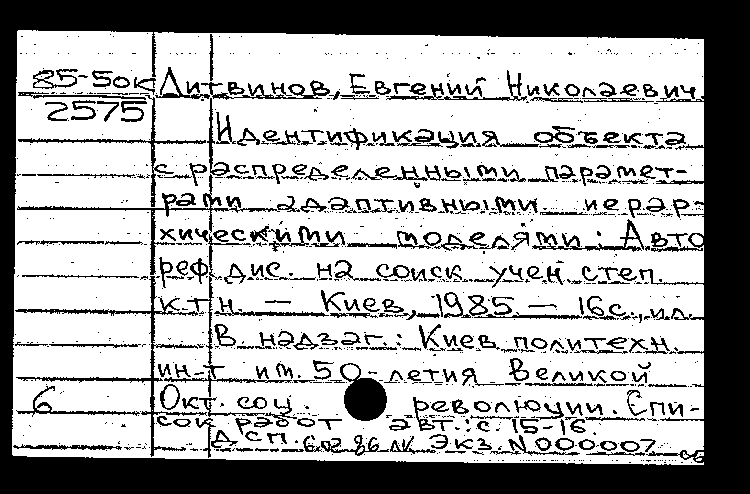 85-5ок Литвинов, Евгений Николаевич.
2575
Идентификация объекта
с распределенными парамет-
рами адаптивными иерар-
хическими моделями: Авто
реф. дис. на соиск учен. степ.
к.т.н. — Киев, 1985 — 16с., ил.
В надзаг.: Киев политехн.
ин-т им. 50-летия Великой
6 Окт. соц. революции. Спи-
сок работ авт.: с. 15-16.
ДСП. Экз. N 000007